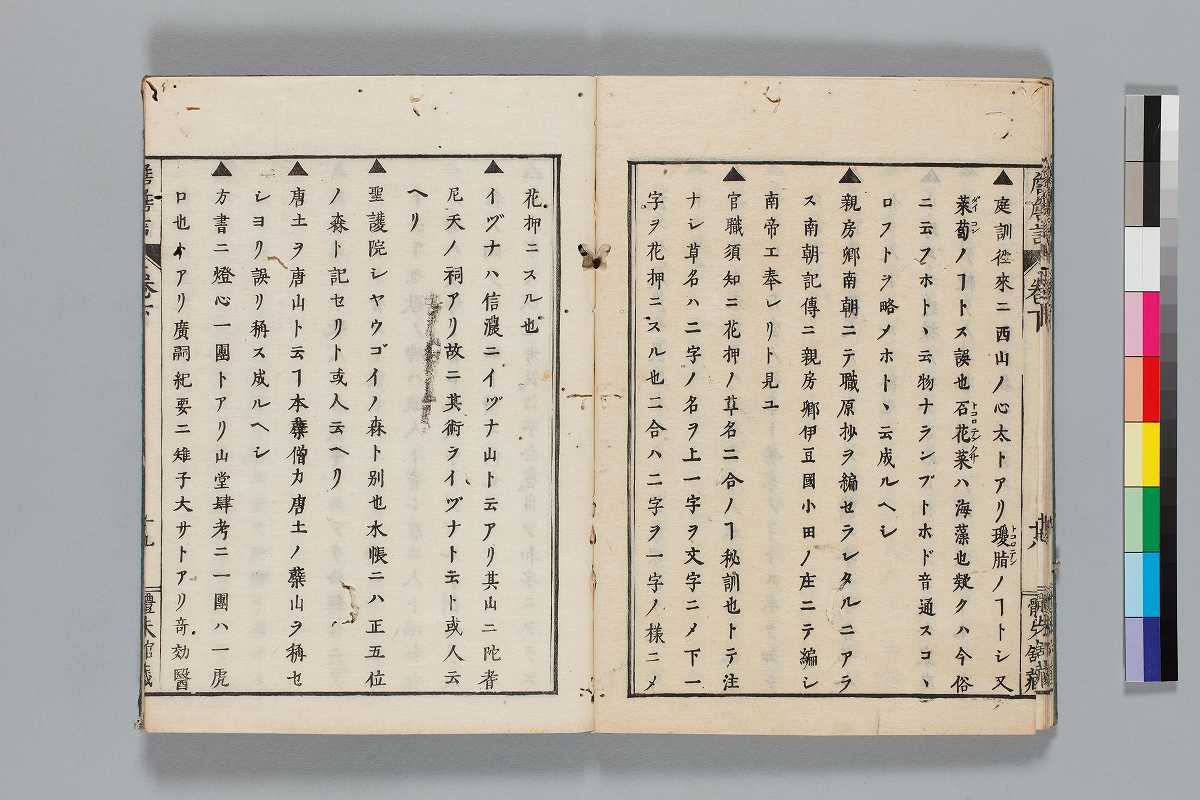 ▲庭訓徃來ニ西山ノ心太トアリ瓊脂ノヿトシ又
トコロテン
萊菊ノヿトス誤也石花菜ハ海藻也疑クハ今俗
ダイコン
トコロテングサ
ニ云フホトヽ云物ナランブトホド音通スコヽ
ロフトヲ略メホトヽ云成ルヘシ
▲親房卿南朝ニテ職原抄ヲ編セラレタルニアラ
ス南朝記傳ニ親房卿伊豆國小田ノ庄ニテ編シ
南帝エ奉レリト見ユ
▲官職須知ニ花押ノ草名二合ノヿ秘訓也トテ注
ナシ草名ハ二字ノ名ヲ上一字ヲ文字ニメ下一
字ヲ花押ニスル也二合ハ二字ヲ一字ノ様ニメ
卷下
十八
花押ニスル也
▲イヅナハ信濃ニイヅナ山ト云アリ其山ニ陀者
尼天ノ祠アリ故ニ其術ライヅナト云ト或人云
ヘリ
▲聖護院シヤウゴイノ森ト別也水帳ニハ正五位
ノ森ト記セリト或人云ヘリ
▲唐土ヲ唐山ト云ヿ本蘗僧カ唐土ノ蘗山ヲ稱セ
シヨリ誤リ稱ス成ルヘシ
▲方書ニ燈心一團トアリ山堂肆考ニ一團ハ一虎
口也トアリ廣嗣紀要ニ雉子大サトアリ奇効醫
卷下
十九